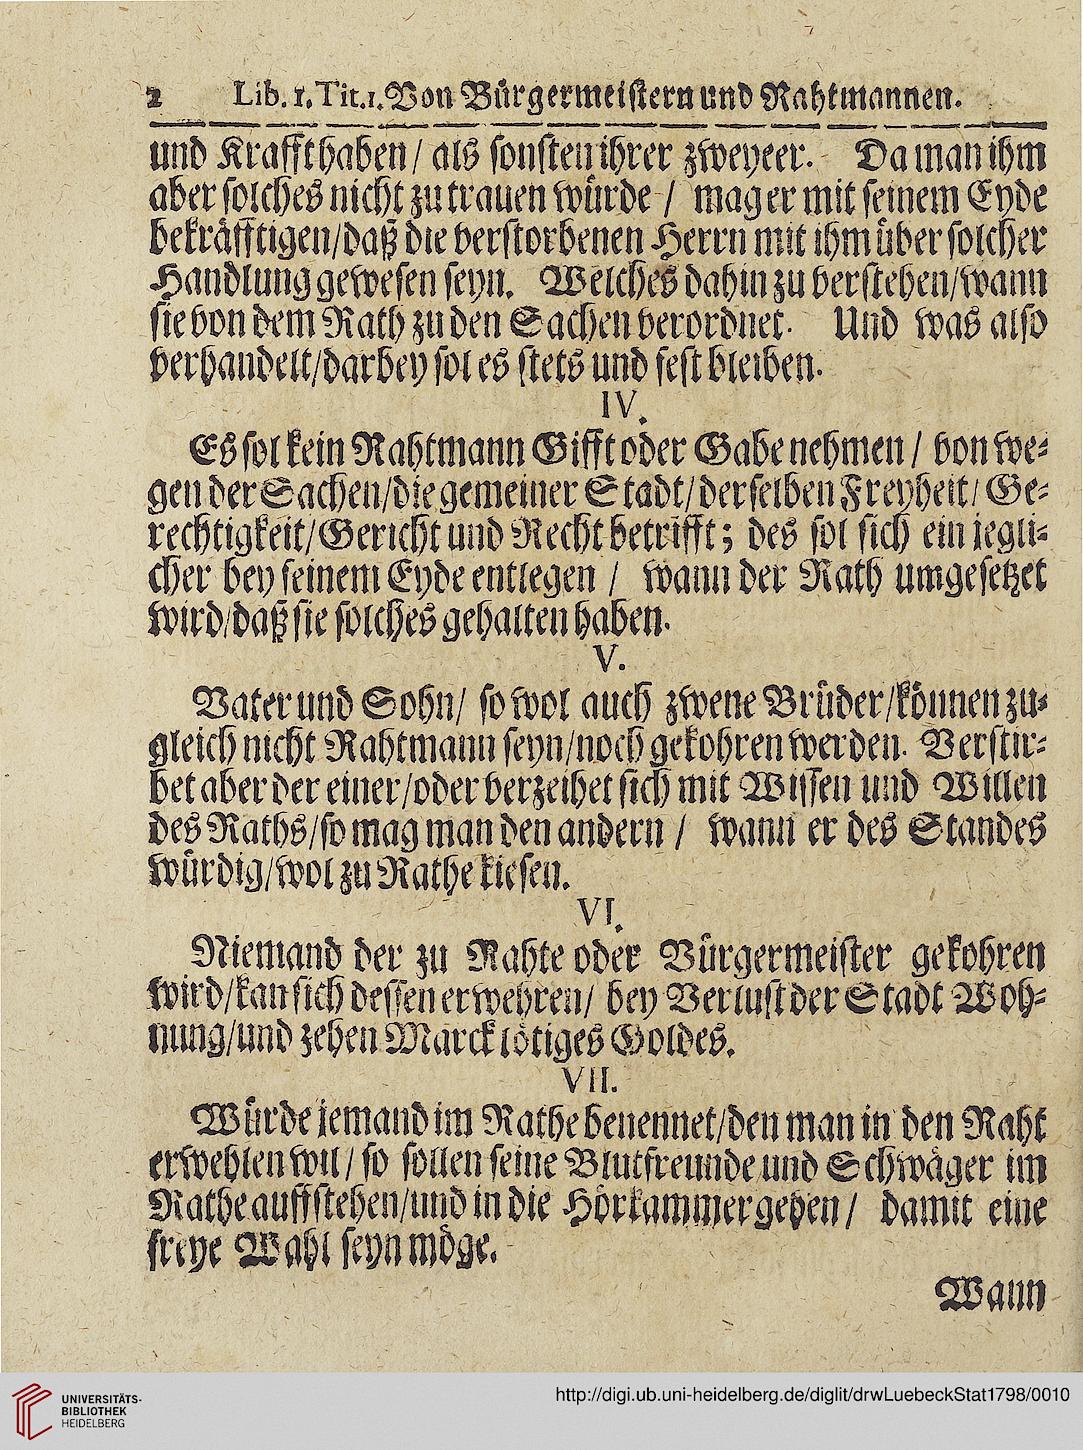 2 Lib. 1. Tit. 1. Von Bürgermeistern und Rahtmannen.
und Krafft haben / als sonsten ihrer zweyeer. Da man ihm
aber solches nicht zu trauen würde / mag er mit seinem Eyde
bekräfftigen/daß die verstorbenen Herrn mit ihm über solcher
Handlung gewesen seyn. Welches dahin zu verstehen/wann
sie von dem Rath zu den Sachen verordnet. Und was also
verhandelt/darbey sol es stets und fest bleiben.
IV.
Es sol kein Rahtmann Gifft oder Gabe nehmen / von we-
gen der Sachen/die gemeiner Stadt/derselben Freyheit/ Ge-
rechtigkeit/Gericht und Recht betrifft; des sol sich ein jegli-
cher bey seinem Eyde entlegen / wann der Rath umgesetzet
wird/daß sie solches gehalten haben.
V.
Vater und Sohn/ so wol auch zwene Brüder/können zu-
gleich nicht Rahtmann seyn/noch gekohren werden. Verstir-
bet aber der einer/oder verzeihet sich mit Wissen und Willen
des Raths/so mag man den andern / wann er des Standes
würdig/wol zu Rathe kiesen.
VI.
Niemand der zu Rahte oder Bürgermeister gekohren
wird/kan sich dessen erwehren/ bey Verlust der Stadt Woh-
nung/und zehen Marck lötiges Goldes.
VII.
Würde jemand im Rathe benennet/den man in den Raht
erwehlen wil/ so sollen seine Blutfreunde und Schwäger im
Rathe auffstehen/und in die Hörkammer gehen/ damit eine
freye Wahl seyn möge.
Wann
UNIVERSITÄTS-
BIBLIOTHEK
HEIDELBERG
http://digi.ub.uni-heidelberg.de/diglit/drwLuebeckStat1798/0010